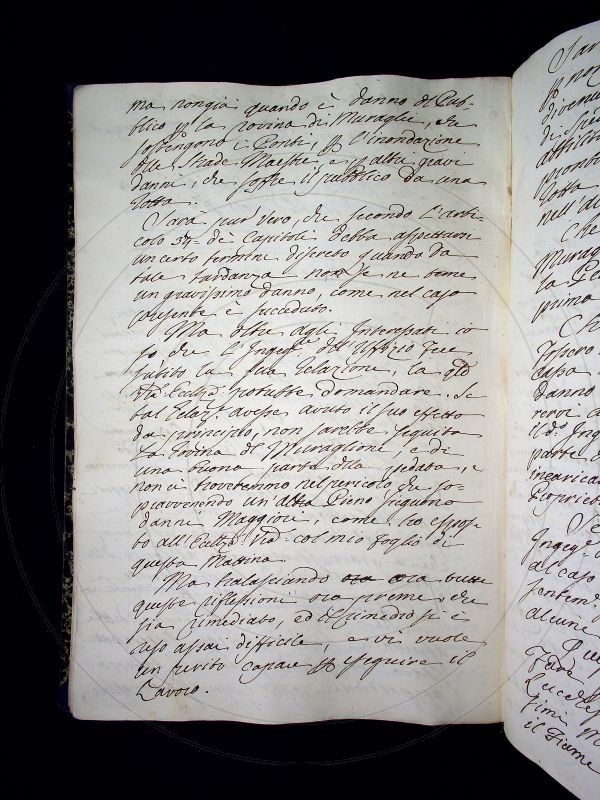 ma non già quando è danno del Pub-
blico p la rovina di Muraglie, che
sostengono i Ponti, p l'inondazione
delle Strade Maestre, e p altri gravi
danni, che soffre il pubblico da una
rotta.
Sarà pur vero, che secondo l'arti-
colo 34. de Capitoli debba aspettarsi
un certo termine discreto quando da
tale tardanza non se ne teme
un gravissimo danno, come nel caso
presente è succeduto.
Ma oltre agli Interessati io
so che l'Ingeg.e del Uffizio fece
subito la sua relazione, la qle
potrebbe domandare. Se
tal Relaz.e avesse avuto il suo effetto
da principio, non sarebbe seguita
la rovina del Muraglione, e di
una buona parte della pedata, e
non ci troveremmo nel pericolo che so-
pravvenendo un'altra Piena seguano
danni Maggiori, come ho espos-
to all' col mio foglio di
questa Mattina.
Ma tralasciando ora tutte
queste riflessioni ora preme, che
sia rimediato, ed il rimedio si è
reso assai difficile, e vi vuole
un perito capace p eseguire il
Lavoro.
Che
Muragl
prima
danno
il d.o Ing
parte
incarica
Ingeg.e
al caso
alcune
il Fiume